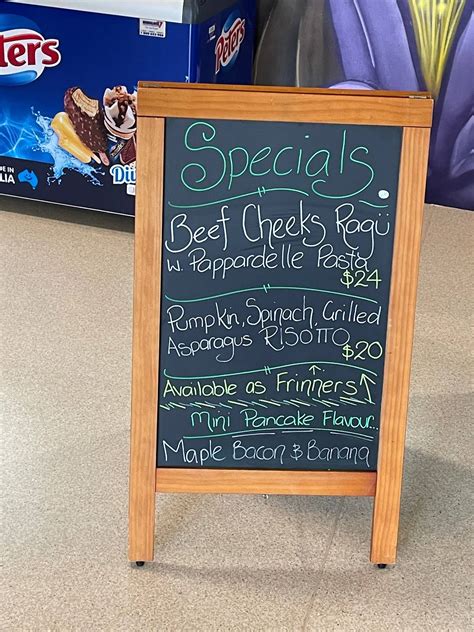 Peters
Peters
Specials.
Beef Cheeks Ragü
w. Pappardelle Pasta
$24
Pumpkin, Spinach, Grilled
Asparagus RISOTTO
$20
Available as Frinners
Mini Pancake Flavour...
Maple Bacon & Banana